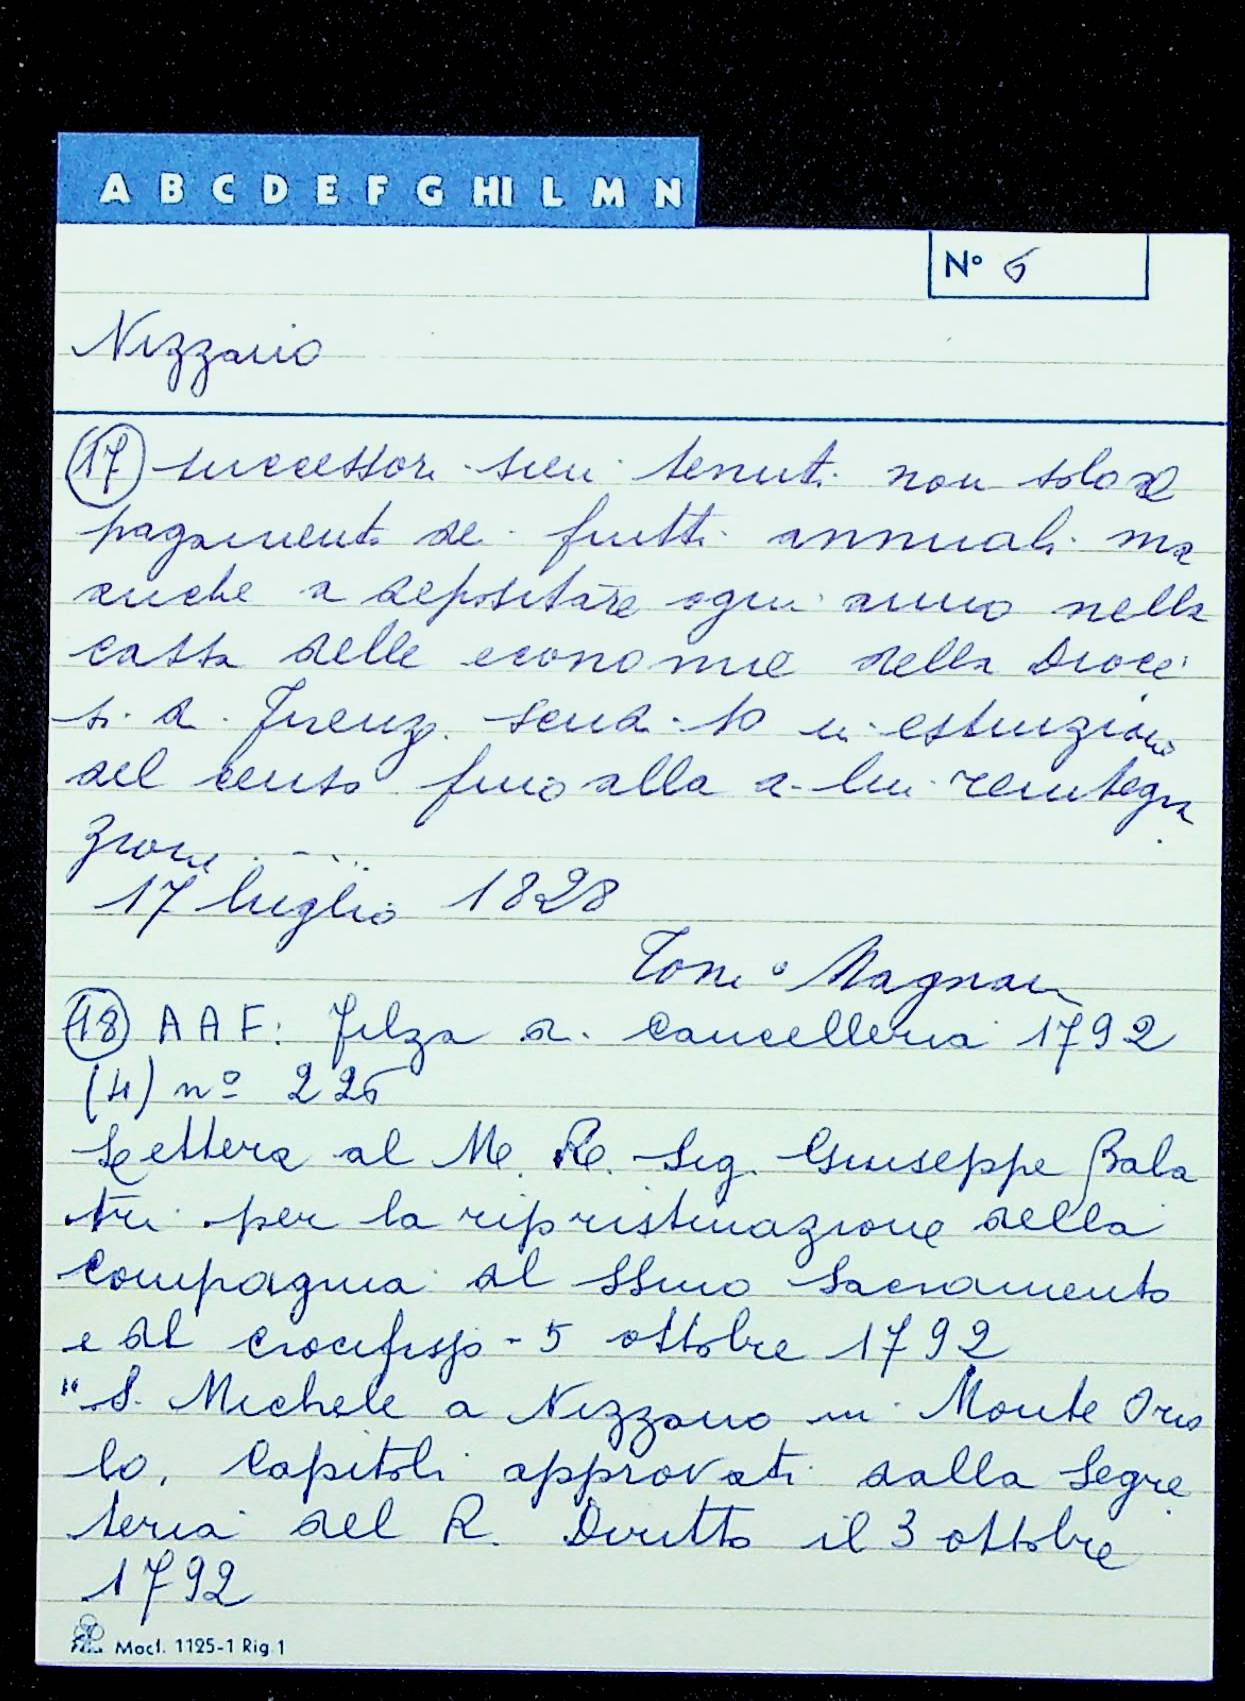 A B C D E F G HI L M N
N° 6
Nizzano
(17) successori suoi tenuti non solo al
pagamento dei frutti annuali ma
anche a depositare ogni anno nella
cassa delle economie della Dioce
si di Firenze scudi 10 in estinzione
del censo fino alla di lui reintegra
zione . - ...
17 luglio 1828
Magnani
(18) A A F: Filza di Cancelleria 1792
(4) n° 226
Lettera al M. R. Sig. Giuseppe Bala
tri per la ripristinazione della
Compagnia del SSmo Sacramento
e del Crocifisso - 5 ottobre 1792
"S. Michele a Nizzano in Monte Orio
lo, Capitoli approvati dalla Segre
teria del R. Diritto il 3 ottobre
1792
Mod. 1125-1 Rig. 1